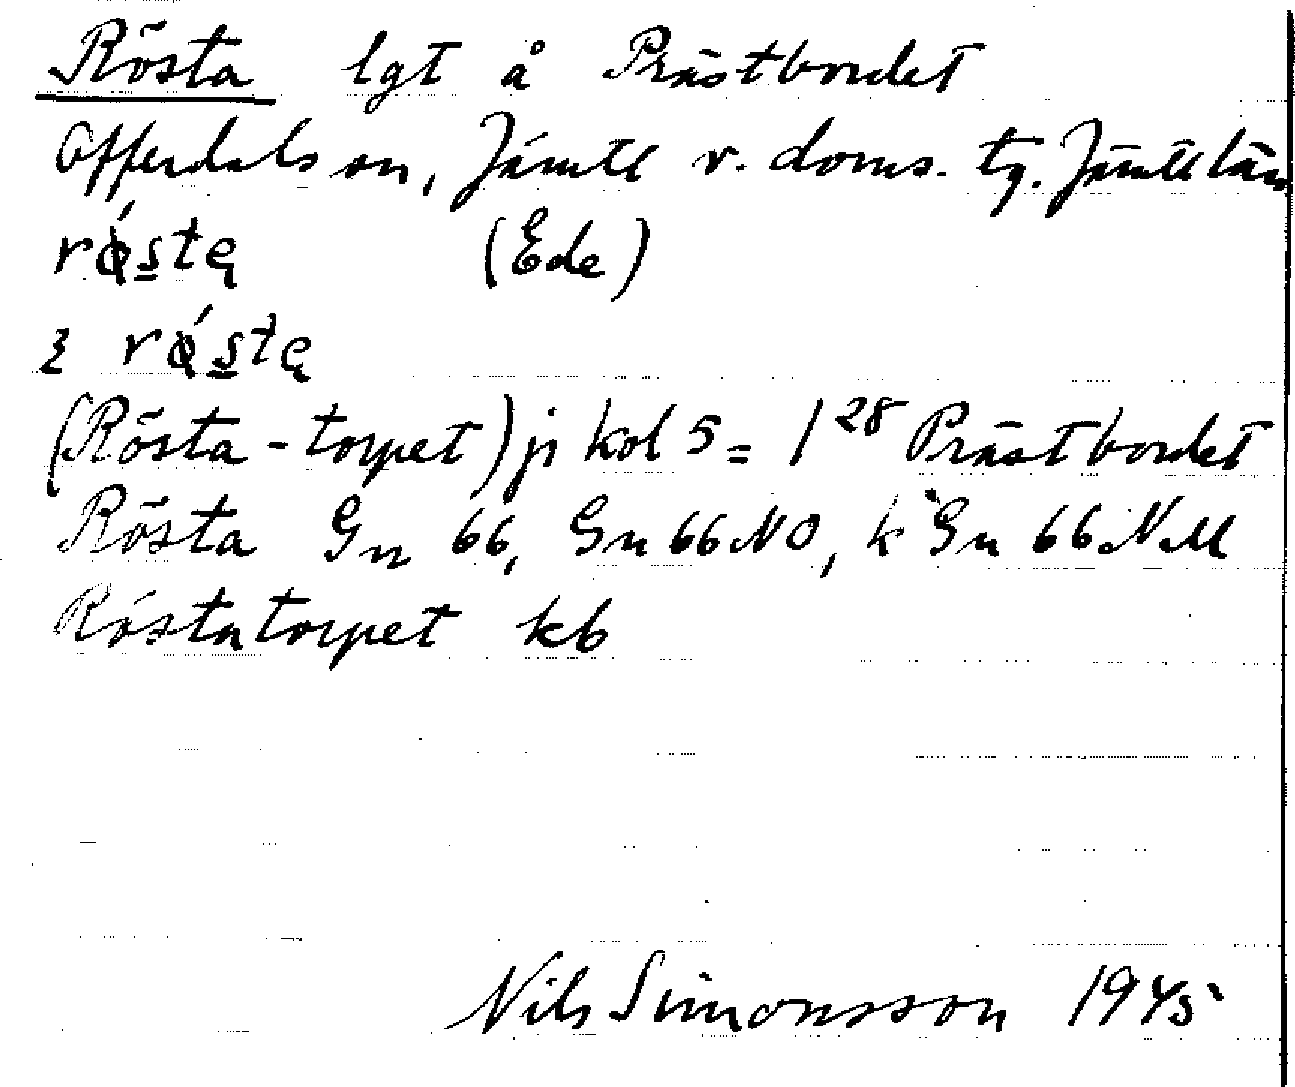 Rösta lgt å Prästbordet
Offerdals sn, Jämtl v. doms. tg. Jämtl län
rǿs̲tę (Ede)
rǿs̲tę
(Rösta-torpet) ji kol 5 = 1²⁸ Prästbordet
Rösta Gn 66, Gn 66 NO, k Gn 66 NM
Röstatorpet kb
Nils Simonsson 1945